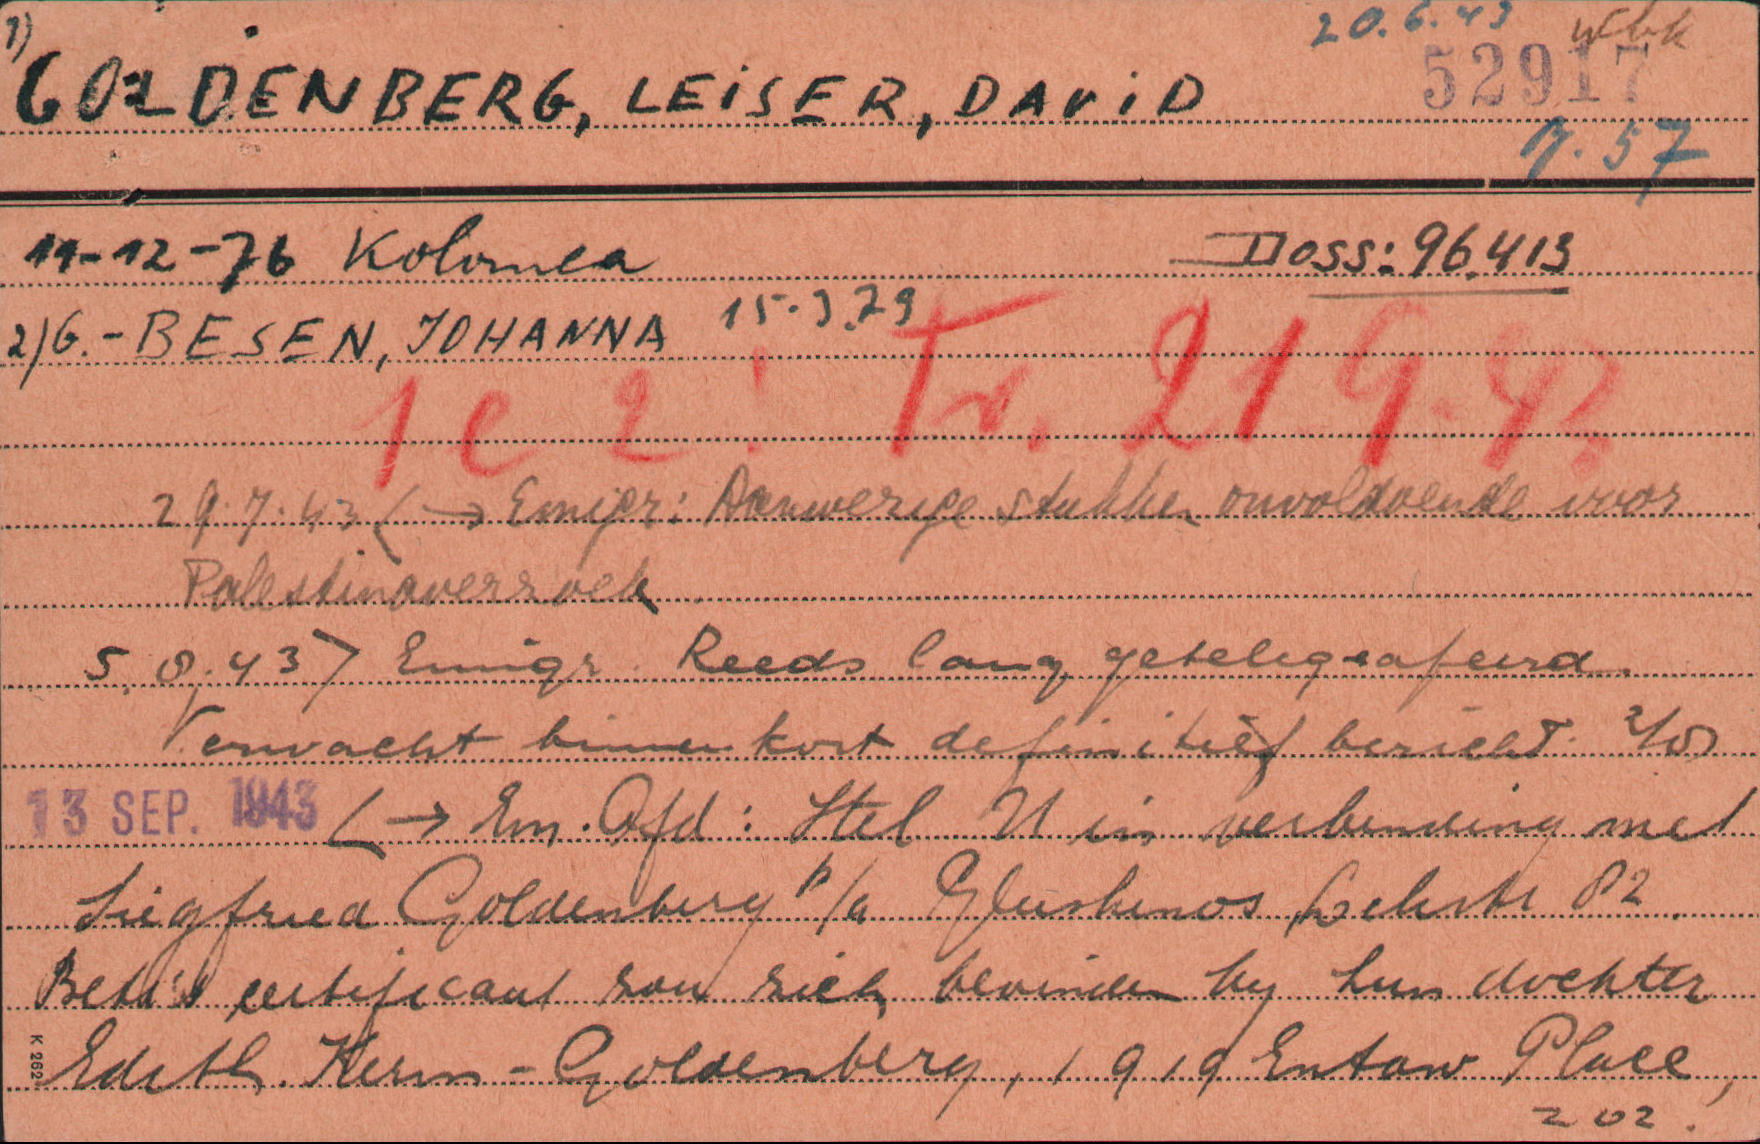 1) 20.6.43 Wbk
GOLDENBERG, LEiSER, DAViD 52917
B. 57
11-12-76 Kolomea Doss: 96.413
2) G.-BESEN, JOHANNA 15.3.79
1 e 2! Tr. 21 9.43
29.7.43 (→ Emigr: Aanwezige stukken onvoldoende voor
Palestinaverzoek.
5.8.43 > Emigr. Reeds lang getelegrafeerd.
Verwacht binnenkort definitief bericht. 2/8
13 SEP. 1943 (→ Em. Afd: Stel U in verbinding met
Siegfried Goldenberg p/a 82.
certificaat zou zich bevinden by hun dochter
Edith Kern-Goldenberg, 1919 Entaw Place,
K 262
z o z.